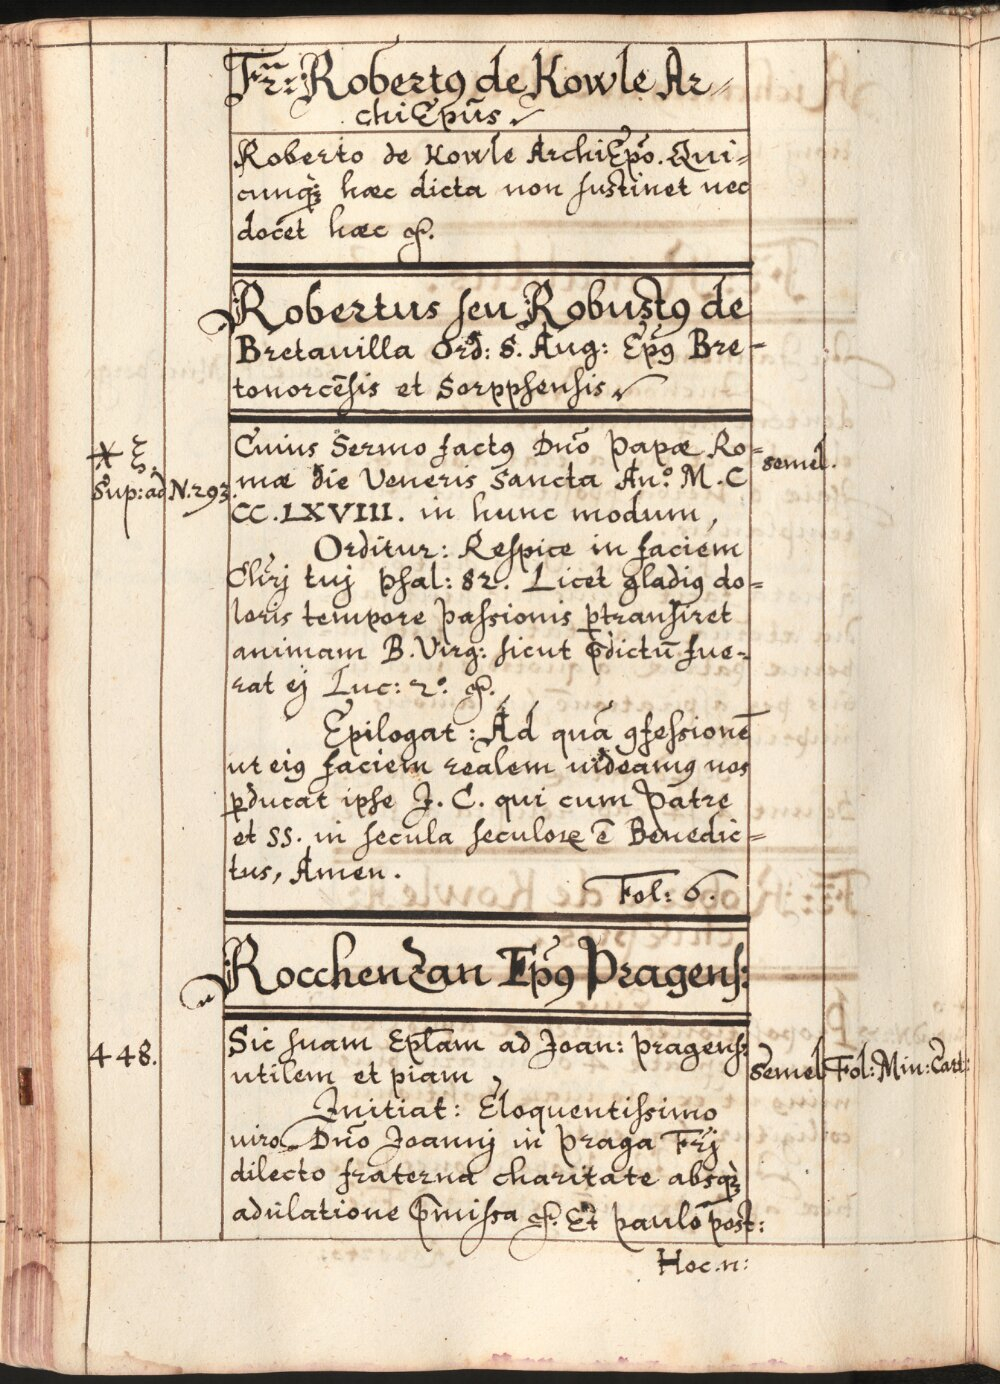 Fr̃: Robertꝯ de Kowle Ar⸗
chiEpũs.
Roberto de Kowle ArchiEpõ. Qui⸗
cunqꝫ hæc dicta non sustinet nec
docet hæc &.
Robertus seu Robustꝯ de
Bretauilla Ord: S. Aug: Epꝯ Bre⸗
tonorcẽsis et Sorppsensis
Cuius Sermo factꝯ Dnõ Papæ Ro⸗
semel.
Sup: ad N. 293.
mæ die Veneris Sancta An.º M.C
CC.LXVIII. in hunc modum,
Orditur: Respice in faciem
Chrj tuj Psal: 82. Licet gladiꝯ do⸗
loris tempore passionis ꝑtransiret
animam B. Virg: sicut p̃dictũ fue⸗
rat ej Luc: 2º. &.
Epilogat: Ad quã ꝯfessionẽ
ut eiꝯ faciem realem uideamꝯ nos
ꝑducat ipse J. C. qui cum Patre
et SS. in secula seculorꝫ ẽ Benedic⸗
tus, Amen.
Fol: 6.
Rocchenzan Epꝯ Pragens:
448.
Sic suam Epl̃am ad Joan: Pragens:
semel
Fol: Min: Cart:
utilem et piam,
Initiat: Eloquentissimo
uiro Dnõ Joannj in Praga Frj
dilecto fraterna charitate absqꝫ
adulatione p̃missa &. Et paulo post:
Hoc.n: